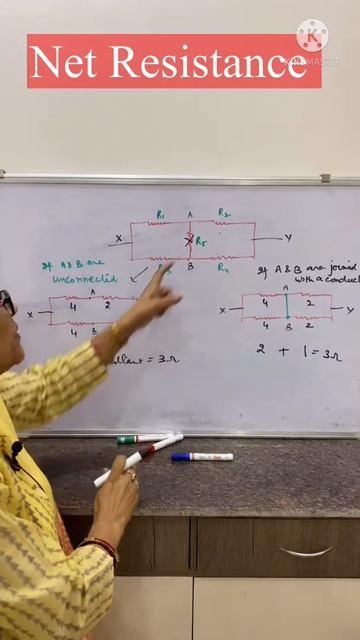 Net Resistance
K
KINEMASTER
R₁ A R₂
X R₅ Y
B R₄
If A & B are
unconnected
A
4 2
X
4 B
= 3Ω
If A & B are joined
with a conduct
A
4 2
X Y
4 B 2
2 + 1 = 3Ω